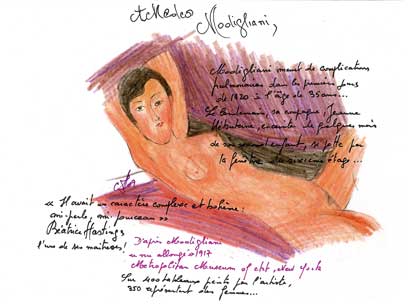 Amedeo
Modigliani,
Modigliani meurt de complications
pulmonaires dans les premiers jours
de 1920 à l'âge de 35 ans...
Le lendemain, sa compagne, Jeanne
Hébuterne, enceinte de quelques mois
de son second enfant, se jette par
la fenêtre du sixième étage...
« Il avait un caractère complexe et bohème:
mi-perle, mi-pourceau »
Béatrice Hastings
l'une de ses maîtresses!
D'après Modigliani
nu allongé 1917
Metropolitan Museum of Art, New York
Sur 400 tableaux peints par l'artiste,
350 représentent des femmes...